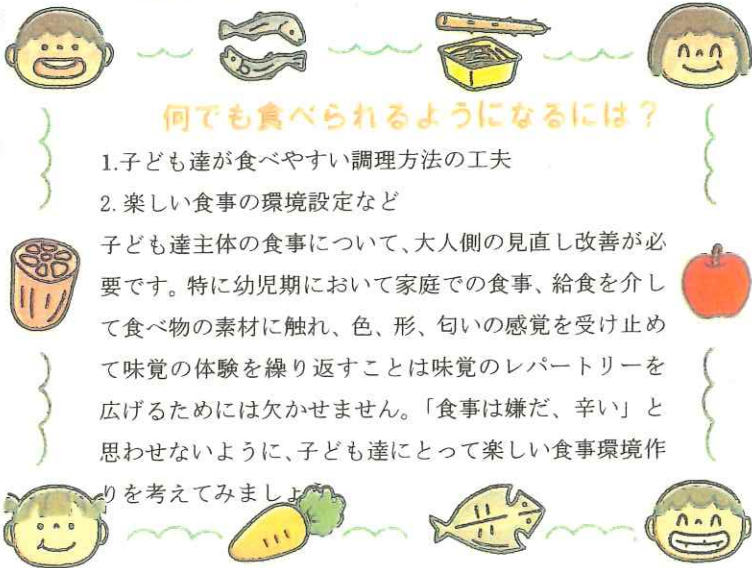 何でも食べられるようになるには?
1.子ども達が食べやすい調理方法の工夫
2. 楽しい食事の環境設定など
子ども達主体の食事について、大人側の見直し改善が必
要です。特に幼児期において家庭での食事、給食を介し
て食べ物の素材に触れ、色、形、匂いの感覚を受け止め
て味覚の体験を繰り返すことは味覚のレパートリーを
広げるためには欠かせません。「食事は嫌だ、辛い」と
思わせないように、子ども達にとって楽しい食事環境作
りを考えてみましょ